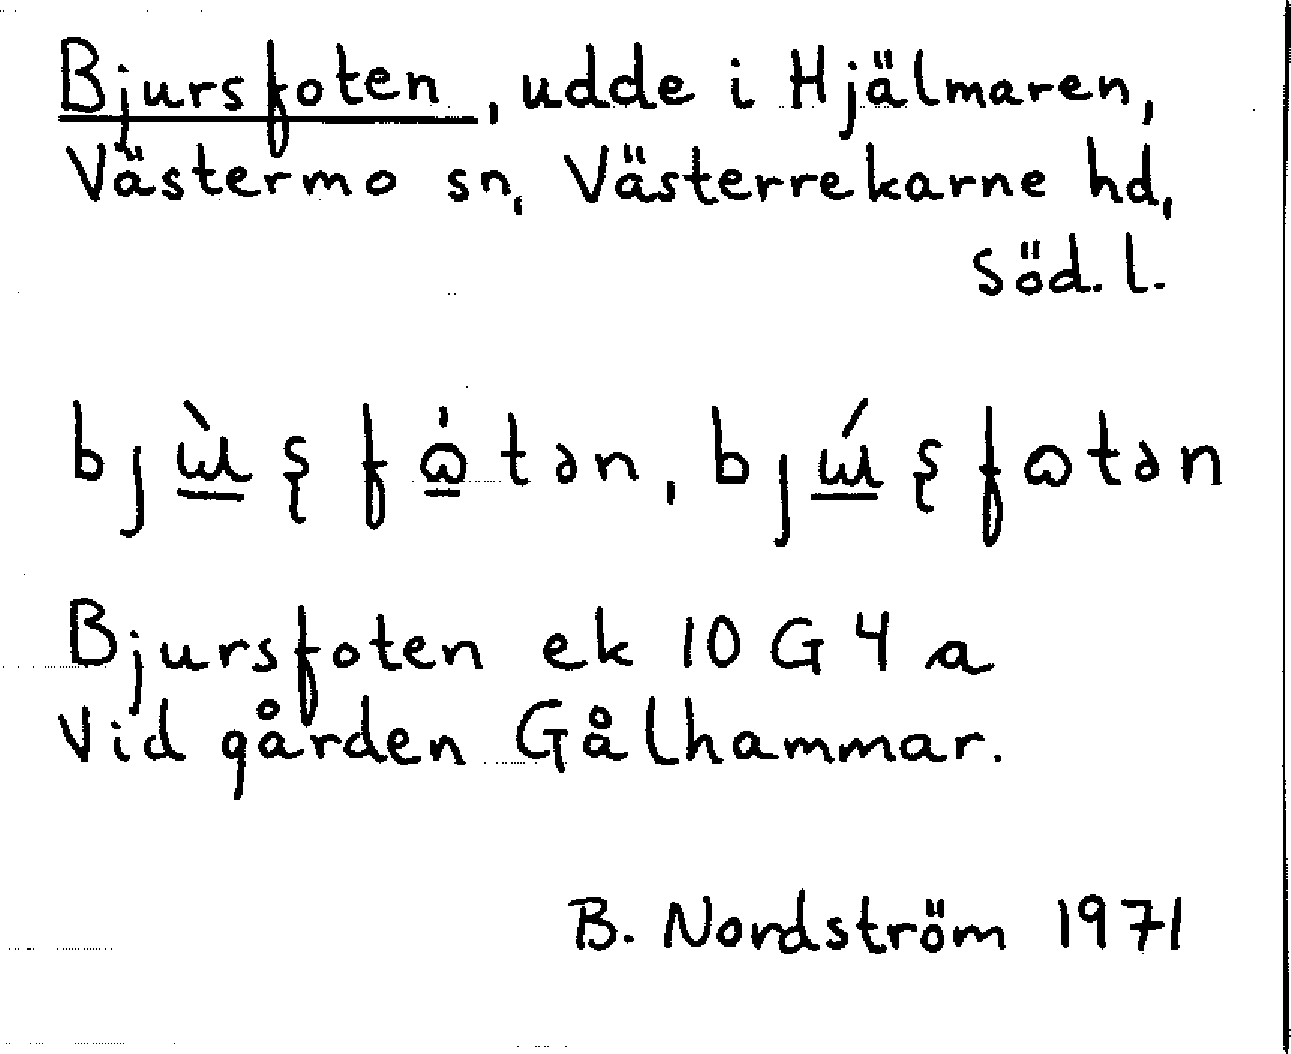 Bjursfoten, udde i Hjälmaren,
Västermo sn, Västerrekarne hd,
Söd. l.
Bjursfoten ek 10 G 4 a
Vid gården Gålhammar.
B. Nordström 1971